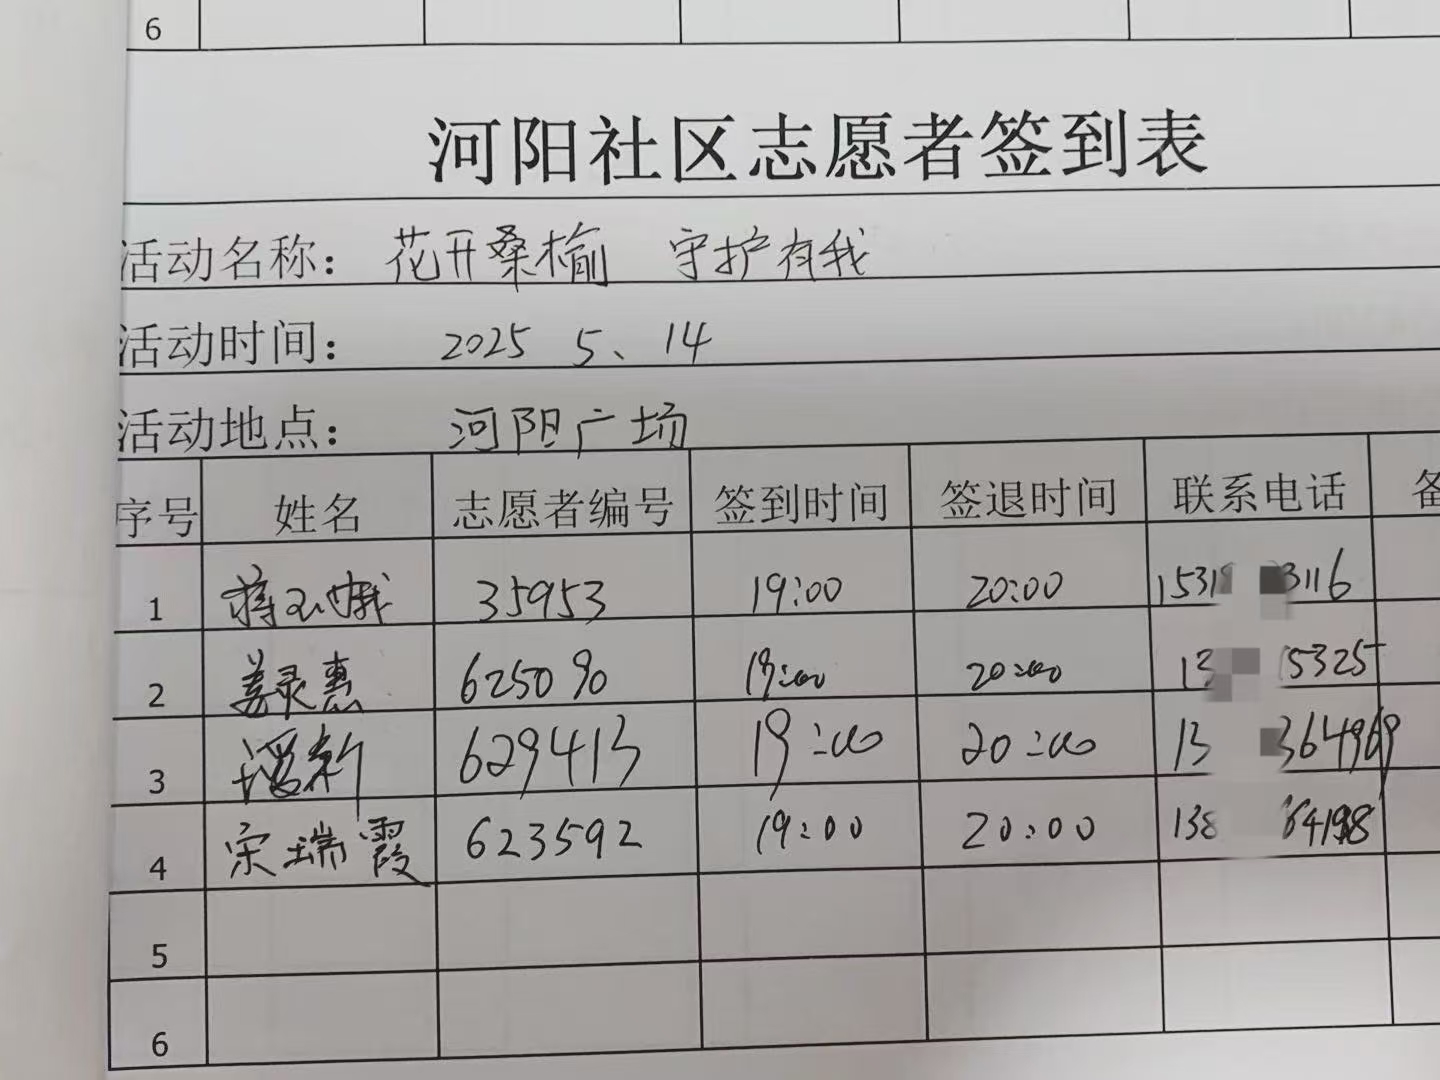 6
河阳社区志愿者签到表
活动名称： 花开桑榆 守护有我
活动时间： 2025 5、14
活动地点： 河阳广场
序号 姓名 志愿者编号 签到时间 签退时间 联系电话 备
1 蒋 娥 35953 19:00 20:00 1531 3116
2 姜录惠 625090 19:00 20:00 13 15325
3 新 629413 19:00 20:00 13 364969
4 宋瑞霞 623592 19:00 20:00 138 64198
5
6